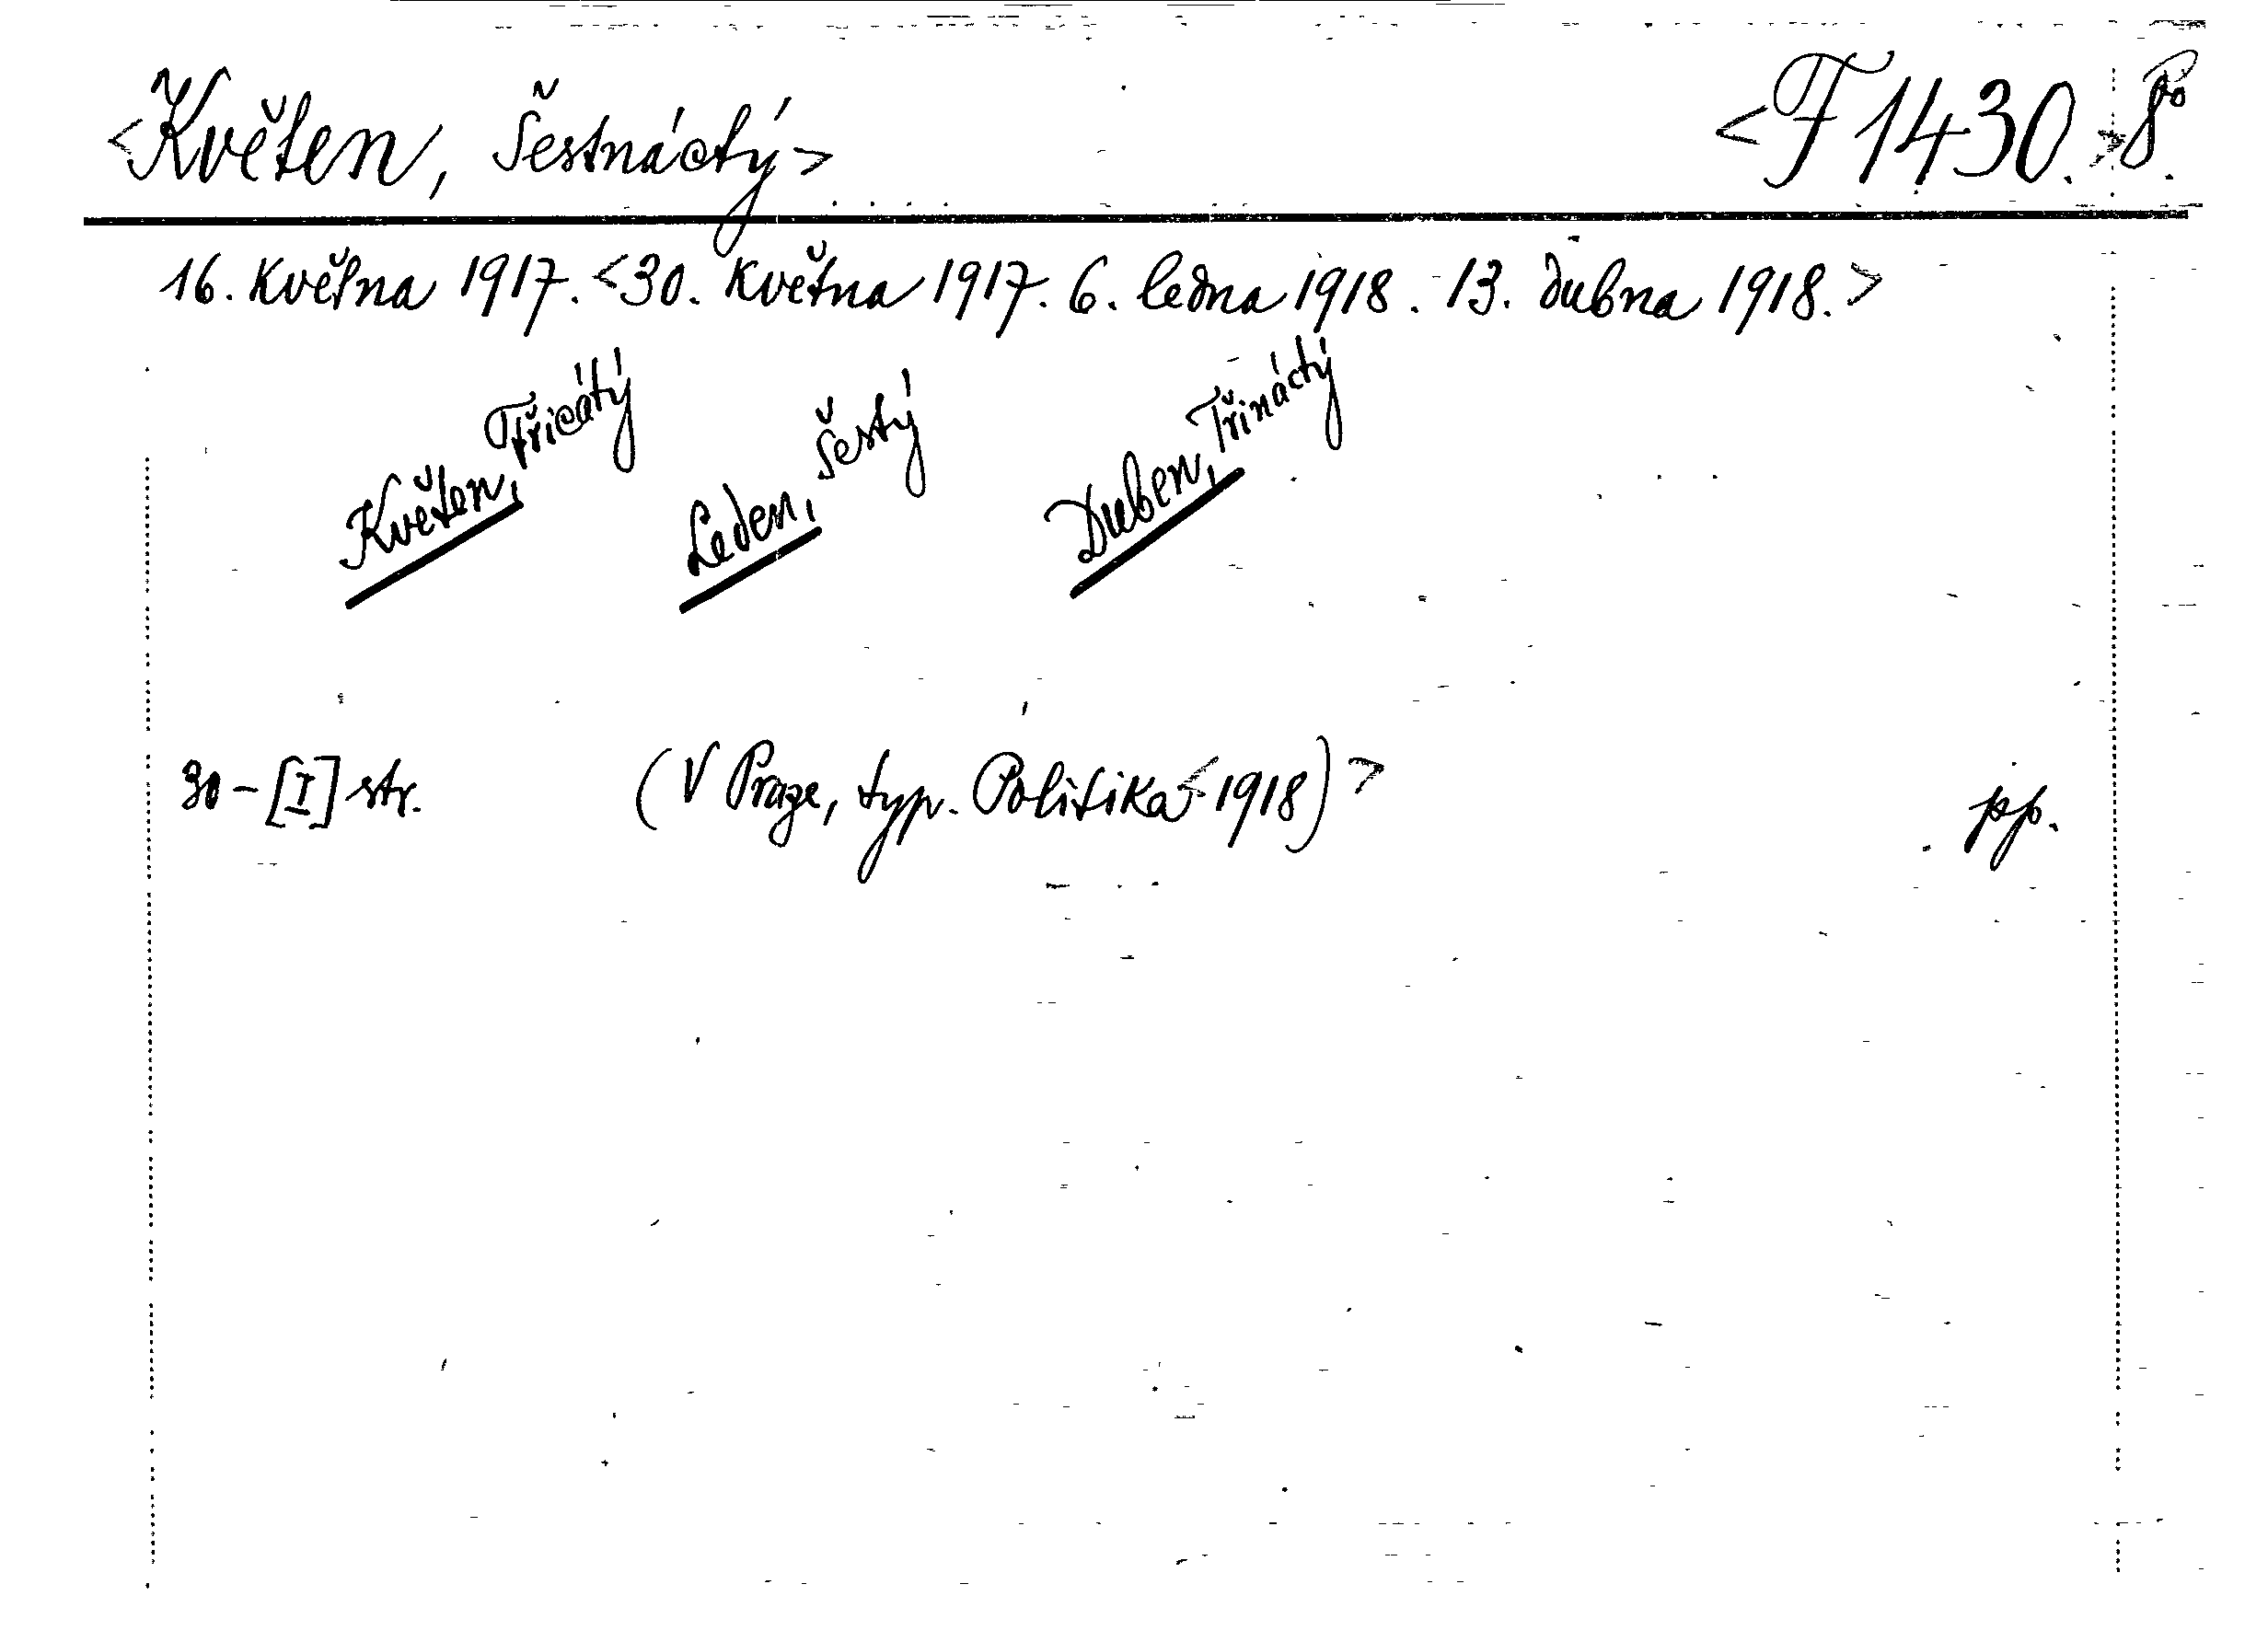 <Květen, šestnáctý> <F 1430.> 8°.
16. května 1917. <30. května 1917. 6. ledna 1918. 13. dubna 1918.>
Květen, Třicátý
Leden, šestý
Duben, Třináctý
30-[I] str. (V Praze, typ. Politika < 1918) > pp.